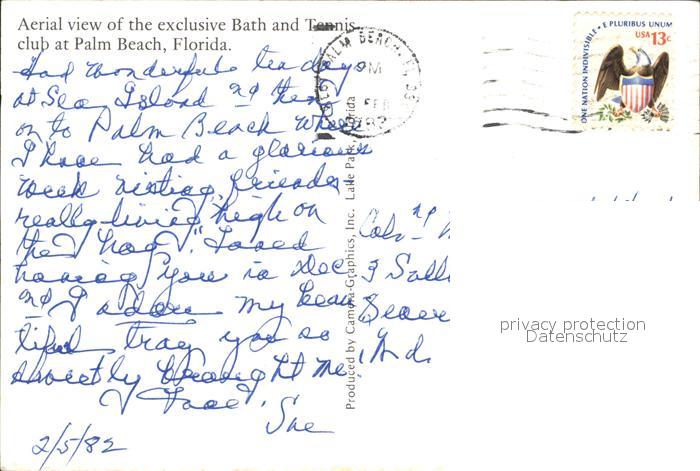 Aerial view of the exclusive Bath and Tennis
club at Palm Beach, Florida.
Had wonderful ten days
at Sea Island nd then
on to Palm Beach where
I have had a glorious
week visiting friends
really living "high on
the hog." Loved
having you in Dec
nd I adore my beau
tiful tray you so
sweetly brought me.
Love,
Sue
2/5/82
PALM BEACH, FL
PM
FEB
E PLURIBUS UNUM
USA 13c
ONE NATION INDIVISIBLE
Produced by Camera-Graphics, Inc. Lake Park, Florida
3
privacy protection
Datenschutz